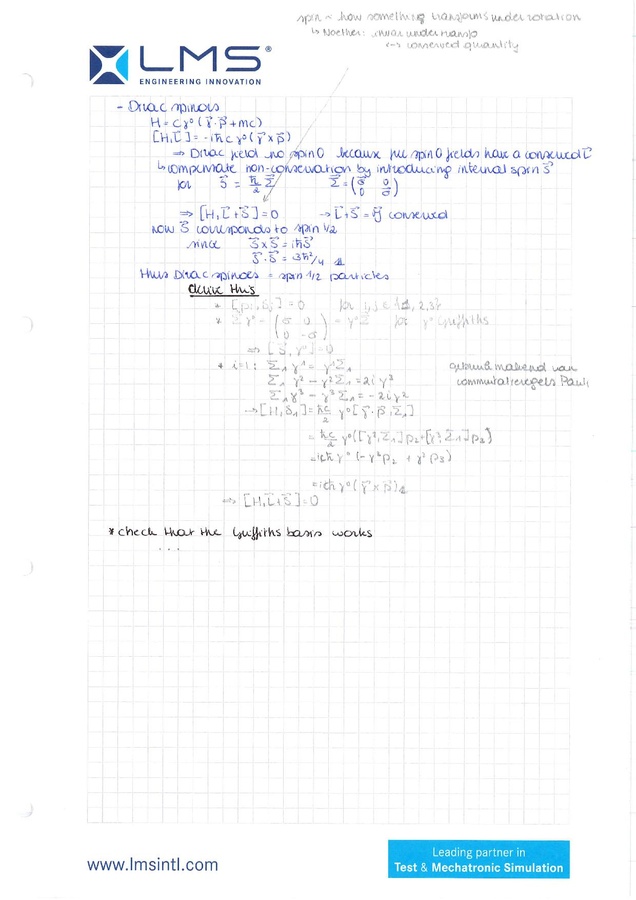 spin ~ how something transforms under rotation
↳ Noether: invar under transfo
↔ conserved quantity
LMS®
ENGINEERING INNOVATION
- Dirac spinors
H = cγ⁰(γ⃗·p⃗ + mc)
[H, L⃗] = -iħcγ⁰(γ⃗×p⃗)
⇒ Dirac field no spin 0 because pure spin 0 fields have a conserved L⃗
↳ compensate non-conservation by introducing internal spin S⃗
for S⃗ = ħ/2 Σ⃗ Σ⃗ = (σ⃗ 0 0 σ⃗)
⇒ [H, L⃗+S⃗] = 0 → L⃗+S⃗ = J⃗ conserved
now S⃗ corresponds to spin 1/2
since S⃗×S⃗ = iħS⃗
S⃗·S⃗ = 3ħ²/4 𝟙
thus Dirac spinors = spin 1/2 particles
derive this
* [pi, Sj] = 0 for i,j ∈ {1,2,3}
* Σ⃗γ⁰ = (σ 0 0 -σ) = γ⁰Σ⃗ for γ⁰ Griffiths
⇒ [S⃗, γ⁰] = 0
* i=1: Σ₁γ¹ = γ¹Σ₁ gebruik makend van
Σ₁γ² - γ²Σ₁ = 2iγ³ commutatieregels Pauli
Σ₁γ³ - γ³Σ₁ = -2iγ²
→ [H, S₁] = ħc/2 γ⁰[γ⃗·p⃗, Σ₁]
= ħc/2 γ⁰([γ², Σ₁]p₂ + [γ³, Σ₁]p₃)
= icħγ⁰(-γ³p₂ + γ²p₃)
= icħγ⁰(γ⃗×p⃗)₁
⇒ [H, L⃗+S⃗] = 0
* check that the Griffiths basis works
...
www.lmsintl.com
Leading partner in
Test & Mechatronic Simulation